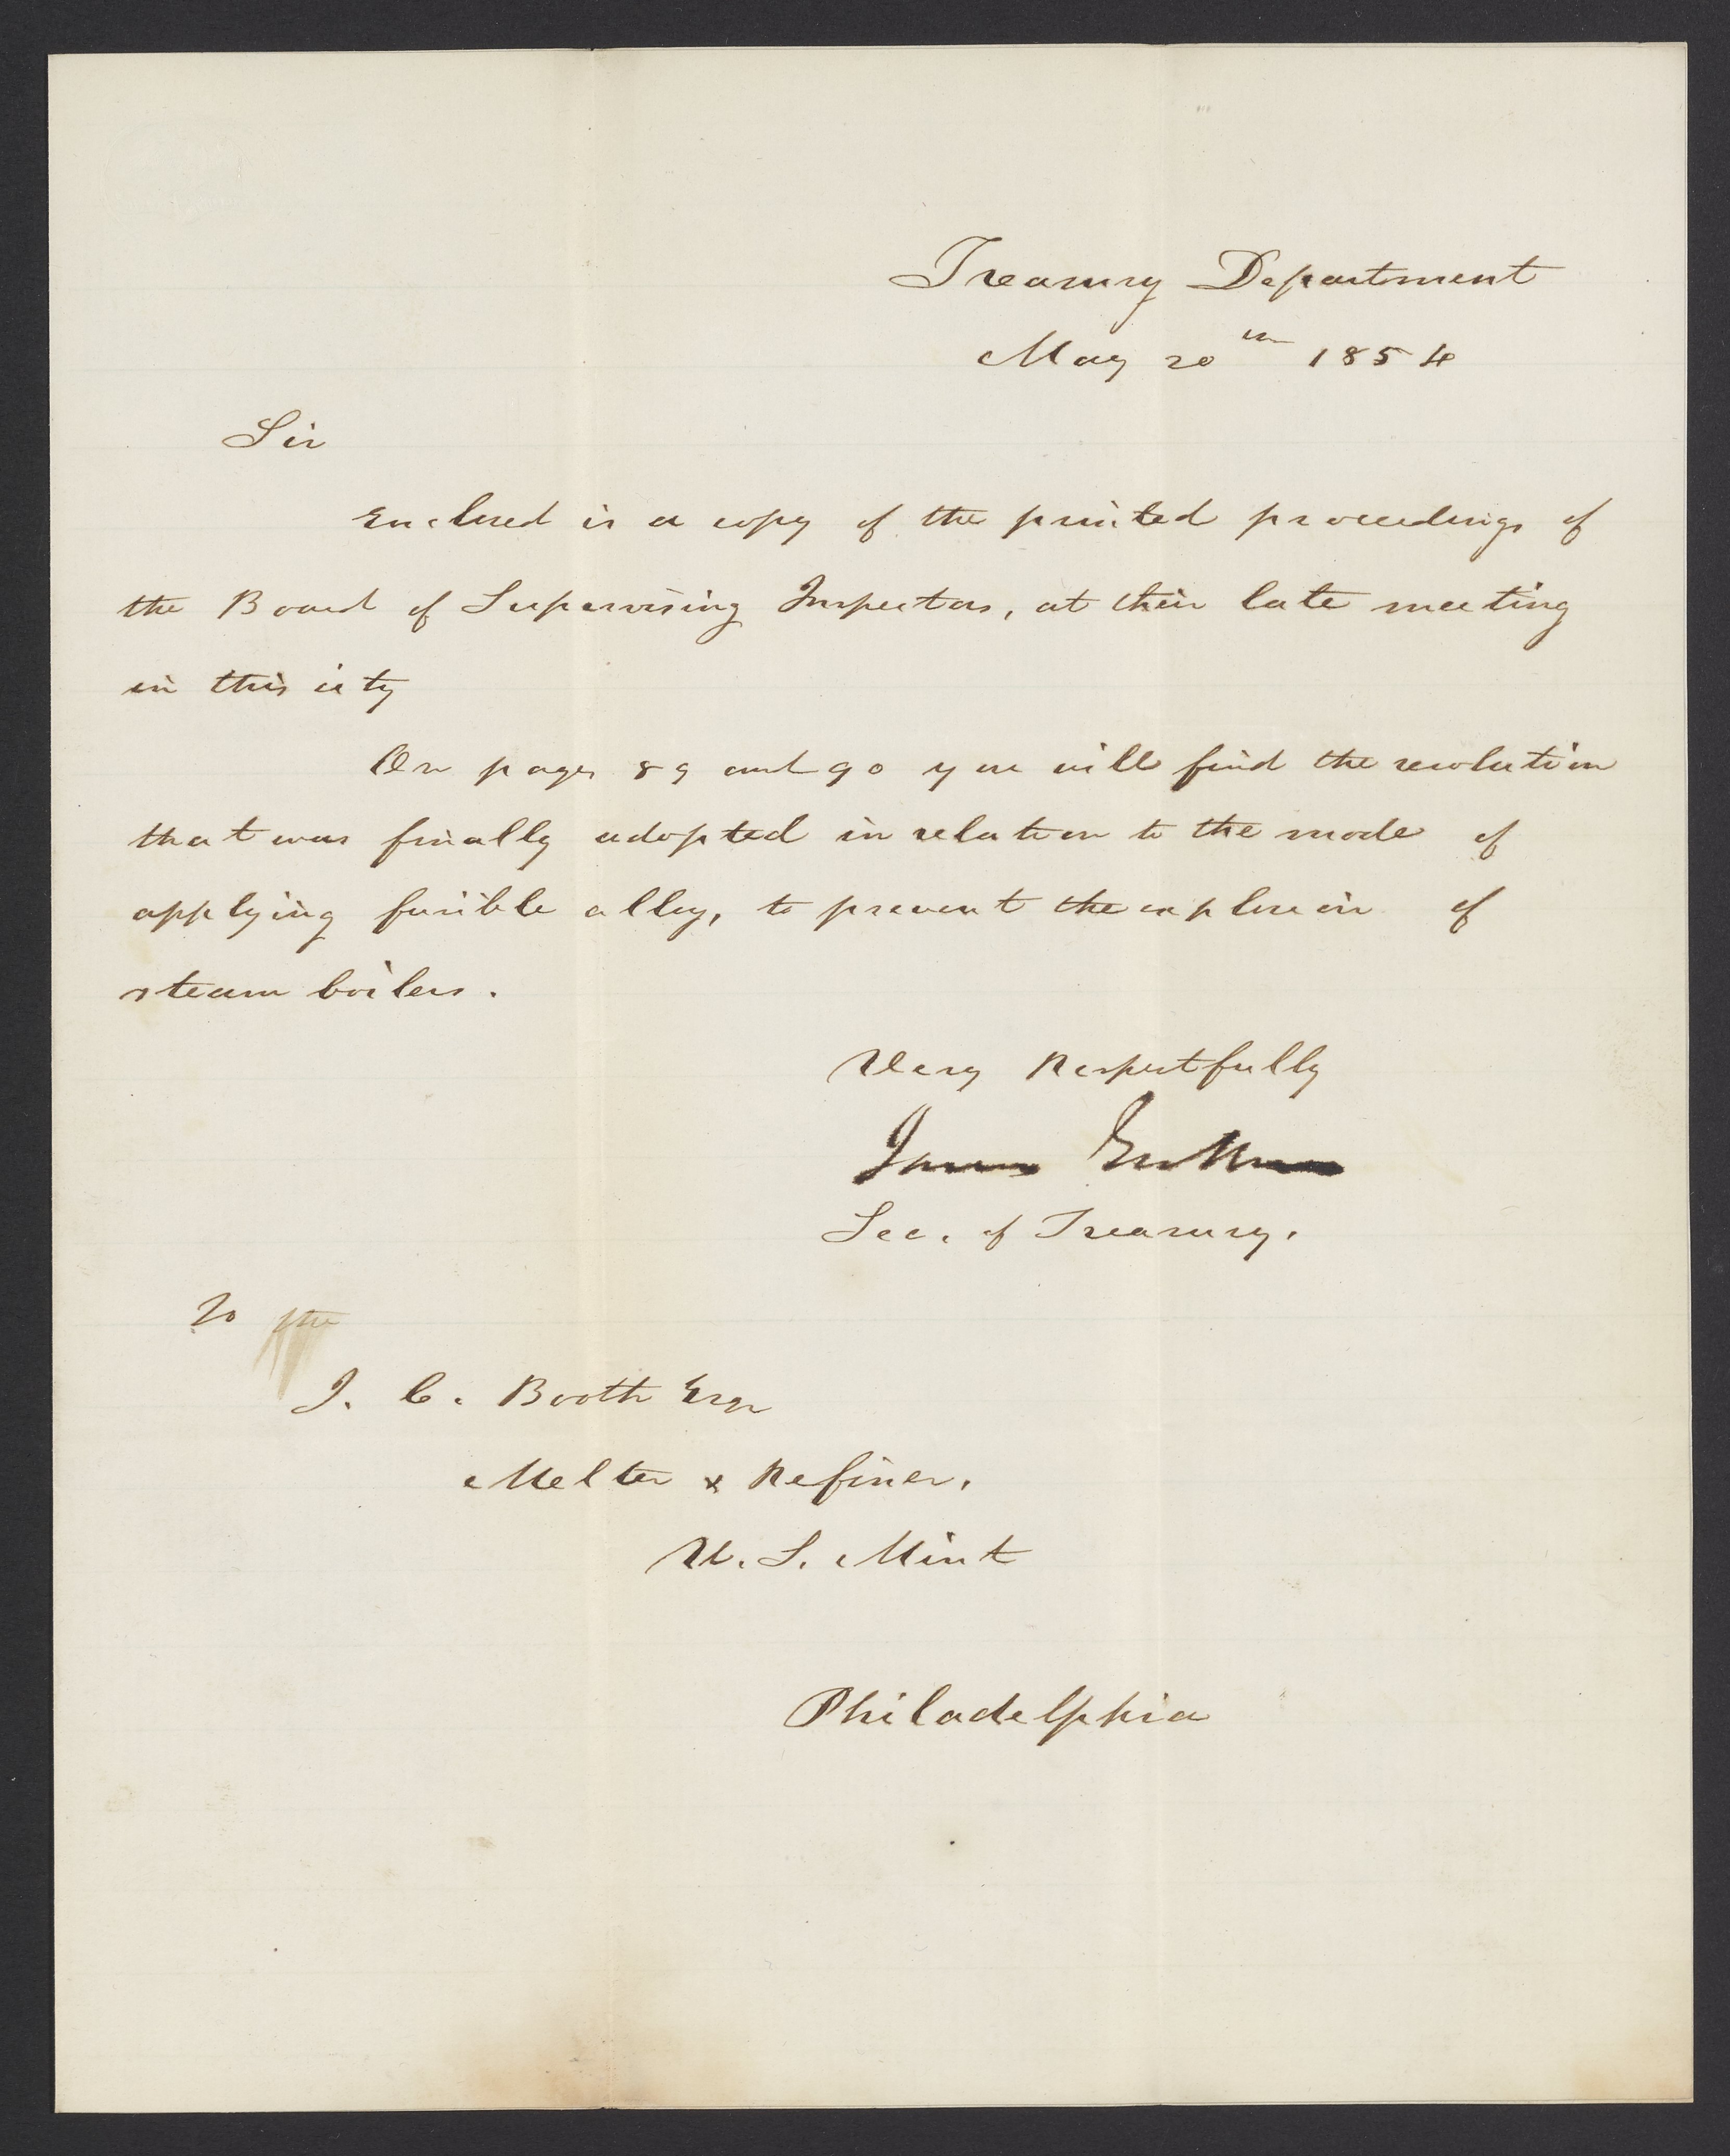 Treasury Department
May 20th 1854
Sir
Enclosed is a copy of the printed proceedings of
the Board of Supervising Inspectors, at their late meeting
in this city
On pages 89 and 90 you will find the resolution
that was finally adopted in relation to the mode of
applying fusible alloy, to prevent the explosion of
steam boilers.
Very Respectfully
James Guthrie
Sec. of Treasury.
To the
J. C. Booth Esqr
Melter & Refiner,
U. S. Mint
Philadelphia